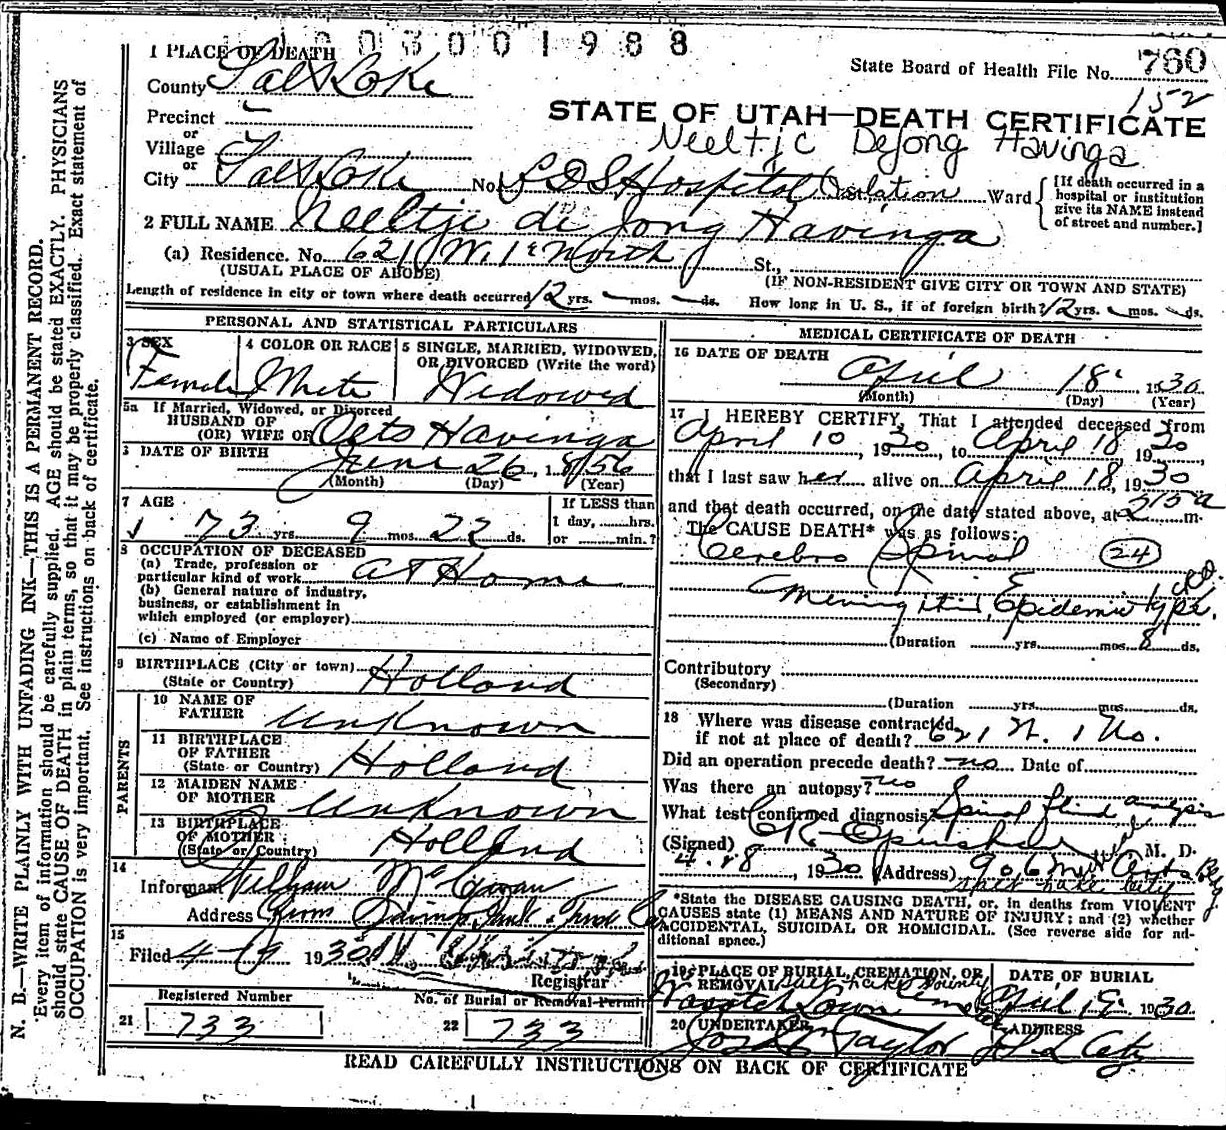 1003001988
1 PLACE OF DEATH
County Salt Lake
State Board of Health File No. 760
152
Precinct
or
Village
or
City Salt Lake No. LDS Hospital Isolation Ward
STATE OF UTAH—DEATH CERTIFICATE
Neeltje DeJong Havinga
[If death occurred in a
hospital or institution
give its NAME instead
of street and number.]
2 FULL NAME Neeltje de Jong Havinga
(a) Residence. No. 621 W. 1st North St.,
(USUAL PLACE OF ABODE) (IF NON-RESIDENT GIVE CITY OR TOWN AND STATE)
Length of residence in city or town where death occurred 12 yrs. — mos. — ds. How long in U. S., if of foreign birth? 12 yrs. — mos. — ds.
PERSONAL AND STATISTICAL PARTICULARS
3 SEX
Female
4 COLOR OR RACE
White
5 SINGLE, MARRIED, WIDOWED,
OR DIVORCED (Write the word)
Widowed
5a If Married, Widowed, or Divorced
HUSBAND OF
(OR) WIFE OF Oets Havinga
DATE OF BIRTH
June 26, 1856
(Month) (Day) (Year)
7 AGE
73 yrs. 9 mos. 22 ds.
If LESS than
1 day, ......hrs.
or ......min.?
8 OCCUPATION OF DECEASED
(a) Trade, profession or
particular kind of work At Home
(b) General nature of industry,
business, or establishment in
which employed (or employer)
(c) Name of Employer
9 BIRTHPLACE (City or town)
(State or Country) Holland
PARENTS
10 NAME OF
FATHER Unknown
11 BIRTHPLACE
OF FATHER
(State or Country) Holland
12 MAIDEN NAME
OF MOTHER Unknown
13 BIRTHPLACE
OF MOTHER
(State or Country) Holland
14
Informant William McEwan
Address
15
Filed 4-19 1930
Registrar
Registered Number
21 733
No. of Burial or Removal Permit
22 733
MEDICAL CERTIFICATE OF DEATH
16 DATE OF DEATH
April 18 1930
(Month) (Day) (Year)
17 I HEREBY CERTIFY, That I attended deceased from
April 10, 1930, to April 18, 1930,
that I last saw her alive on April 18, 1930
and that death occurred, on the date stated above, at 215 a m.
The CAUSE DEATH* was as follows:
Cerebro Spinal (24)
Meningitis, Epidemic type.
(Duration yrs. mos. 8 ds.
Contributory
(Secondary)
(Duration yrs. mos. ds.
18 Where was disease contracted
if not at place of death? 621 W. 1 No.
Did an operation precede death? no Date of
Was there an autopsy? no
What test confirmed diagnosis Spinal fluid analysis
(Signed) M. D.
4.18, 1930 (Address) 906 Med Arts Bldg.
Salt Lake City
*State the DISEASE CAUSING DEATH, or, in deaths from VIOLENT
CAUSES state (1) MEANS AND NATURE OF INJURY; and (2) whether
ACCIDENTAL, SUICIDAL OR HOMICIDAL. (See reverse side for ad-
ditional space.)
19 PLACE OF BURIAL, CREMATION, OR
REMOVAL Salt Lake County
Wasatch Lawn Cem
DATE OF BURIAL
April 19 1930
20 UNDERTAKER
Taylor
ADDRESS
S L City
READ CAREFULLY INSTRUCTIONS ON BACK OF CERTIFICATE
N. B.—WRITE PLAINLY WITH UNFADING INK—THIS IS A PERMANENT RECORD.
Every item of information should be carefully supplied. AGE should be stated EXACTLY. PHYSICIANS
should state CAUSE OF DEATH in plain terms, so that it may be properly classified. Exact statement of
OCCUPATION is very important. See instructions on back of certificate.